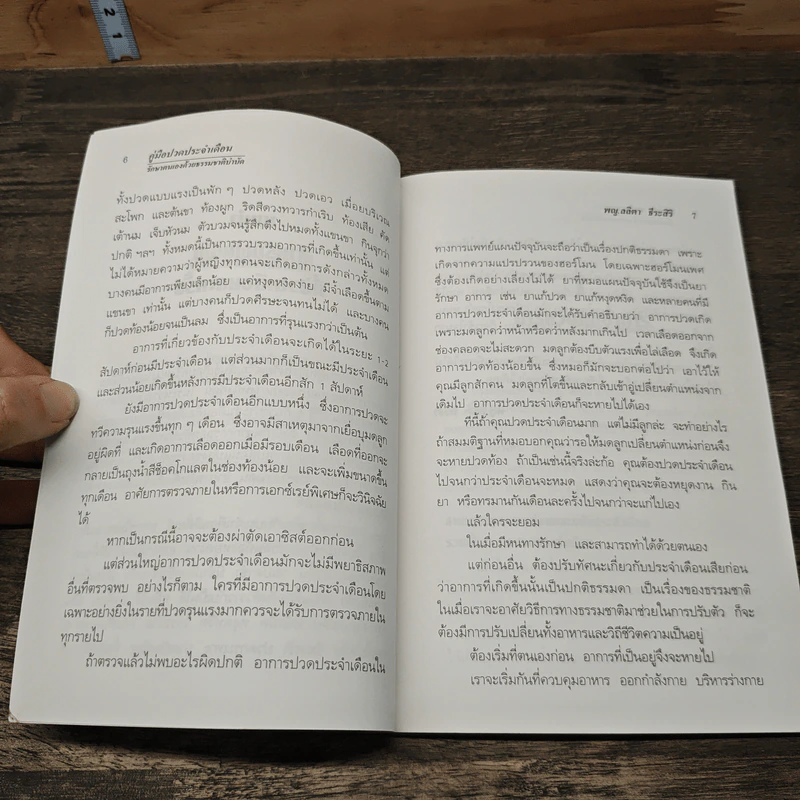 2
1
6
คู่มือปวดประจำเดือน
รักษาตนเองด้วยธรรมชาติบำบัด
ทั้งปวดแบบแรงเป็นพัก ๆ ปวดหลัง ปวดเอว เมื่อยบริเวณ
สะโพก และต้นขา ท้องผูก ริดสีดวงทวารกำเริบ ท้องเสีย คัด
เต้านม เจ็บหัวนม ตัวบวมจนรู้สึกตึงไปหมดทั้งแขนขา กินจุกว่า
ปกติ ฯลฯ ทั้งหมดนี้เป็นการรวบรวมอาการที่เกิดขึ้นเท่านั้น แต่
ไม่ได้หมายความว่าผู้หญิงทุกคนจะเกิดอาการดังกล่าวทั้งหมด
บางคนมีอาการเพียงเล็กน้อย แค่หงุดหงิดง่าย มีจ้ำเลือดขึ้นตาม
แขนขา เท่านั้น แต่บางคนก็ปวดศีรษะจนทนไม่ได้ และบางคน
ก็ปวดท้องน้อยจนเป็นลม ซึ่งเป็นอาการที่รุนแรงกว่าเป็นต้น
อาการที่เกี่ยวข้องกับประจำเดือนจะเกิดได้ในระยะ 1-2
สัปดาห์ก่อนมีประจำเดือน แต่ส่วนมากก็เป็นขณะมีประจำเดือน
และส่วนน้อยเกิดขึ้นหลังการมีประจำเดือนอีกสัก 1 สัปดาห์
ยังมีอาการปวดประจำเดือนอีกแบบหนึ่ง ซึ่งอาการปวดจะ
ทวีความรุนแรงขึ้นทุก ๆ เดือน ซึ่งอาจมีสาเหตุมาจากเยื่อบุมดลูก
อยู่ผิดที่ และเกิดอาการเลือดออกเมื่อมีรอบเดือน เลือดที่ออกจะ
กลายเป็นถุงน้ำสีช็อคโกแลตในช่องท้องน้อย และจะเพิ่มขนาดขึ้น
ทุกเดือน อาศัยการตรวจภายในหรือการเอกซ์เรย์พิเศษก็จะวินิจฉัย
ได้
หากเป็นกรณีนี้อาจจะต้องผ่าตัดเอาซิสต์ออกก่อน
แต่ส่วนใหญ่อาการปวดประจำเดือนมักจะไม่มีพยาธิสภาพ
อื่นที่ตรวจพบ อย่างไรก็ตาม ใครที่มีอาการปวดประจำเดือนโดย
เฉพาะอย่างยิ่งในรายที่ปวดรุนแรงมากควรจะได้รับการตรวจภายใน
ทุกรายไป
ถ้าตรวจแล้วไม่พบอะไรผิดปกติ อาการปวดประจำเดือนใน
พญ.ลลิตา ธีระสิริ 7
ทางการแพทย์แผนปัจจุบันจะถือว่าเป็นเรื่องปกติธรรมดา เพราะ
เกิดจากความแปรปรวนของฮอร์โมน โดยเฉพาะฮอร์โมนเพศ
ซึ่งต้องเกิดอย่างเลี่ยงไม่ได้ ยาที่หมอแผนปัจจุบันใช้จึงเป็นยา
รักษา อาการ เช่น ยาแก้ปวด ยาแก้หงุดหงิด และหลายคนที่มี
อาการปวดประจำเดือนมักจะได้รับคำอธิบายว่า อาการปวดเกิด
เพราะมดลูกคว่ำหน้าหรือคว่ำหลังมากเกินไป เวลาเลือดออกจาก
ช่องคลอดจะไม่สะดวก มดลูกต้องบีบตัวแรงเพื่อไล่เลือด จึงเกิด
อาการปวดท้องน้อยขึ้น ซึ่งหมอก็มักจะบอกต่อไปว่า เอาไว้ให้
คุณมีลูกสักคน มดลูกที่โตขึ้นและกลับเข้าอู่เปลี่ยนตำแหน่งจาก
เดิมไป อาการปวดประจำเดือนก็จะหายไปได้เอง
ทีนี้ถ้าคุณปวดประจำเดือนมาก แต่ไม่มีลูกล่ะ จะทำอย่างไร
ถ้าสมมติฐานที่หมอบอกคุณว่ารอให้มดลูกเปลี่ยนตำแหน่งก่อนจึง
จะหายปวดท้อง ถ้าเป็นเช่นนี้จริงล่ะก้อ คุณต้องปวดประจำเดือน
ไปจนกว่าประจำเดือนจะหมด แสดงว่าคุณจะต้องหยุดงาน กิน
ยา หรือทรมานกันเดือนละครั้งไปจนกว่าจะแก่ไปเอง
แล้วใครจะยอม
ในเมื่อมีหนทางรักษา และสามารถทำได้ด้วยตนเอง
แต่ก่อนอื่น ต้องปรับทัศนะเกี่ยวกับประจำเดือนเสียก่อน
ว่าอาการที่เกิดขึ้นนั้นเป็นปกติธรรมดา เป็นเรื่องของธรรมชาติ
ในเมื่อเราจะอาศัยวิธีการทางธรรมชาติมาช่วยในการปรับตัว ก็จะ
ต้องมีการปรับเปลี่ยนทั้งอาหารและวิถีชีวิตความเป็นอยู่
ต้องเริ่มที่ตนเองก่อน อาการที่เป็นอยู่จึงจะหายไป
เราจะเริ่มกันที่ควบคุมอาหาร ออกกำลังกาย บริหารร่างกาย